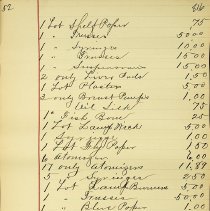 52 816
1 Lot Shelf Paper 75
1 " Trusses 50.00
1 " Syringes 10.00
1 " Trusses 15.00
1 " Suspensories 15.00
2 only Liver Pads 1.50
1 Lot Plasters 5.00
2 only Breast Pumps 1.00
Oil Silk 75
1 Fish Bone 25
1 Lot Lamp Wick 5.00
1 5.00
1 Lot Fly Paper 1.50
6 Atomizers 6.00
17 only Atomizers
5 " Syringes 2.50
1 Lot Lamp Burners 5.00
1 " Trusses 50.00
" Blue Paper 1.00